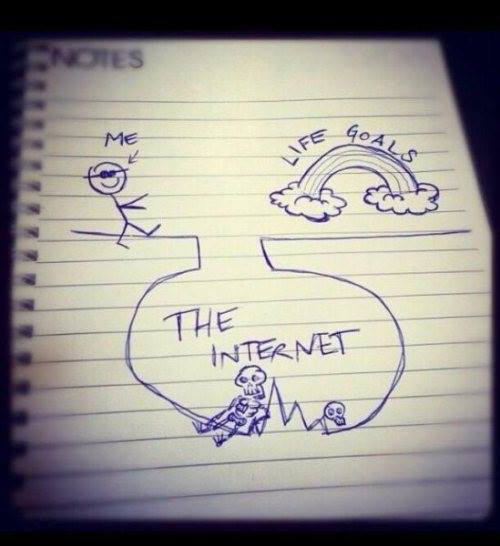 NOTES
ME
LIFE GOALS
THE
INTERNET